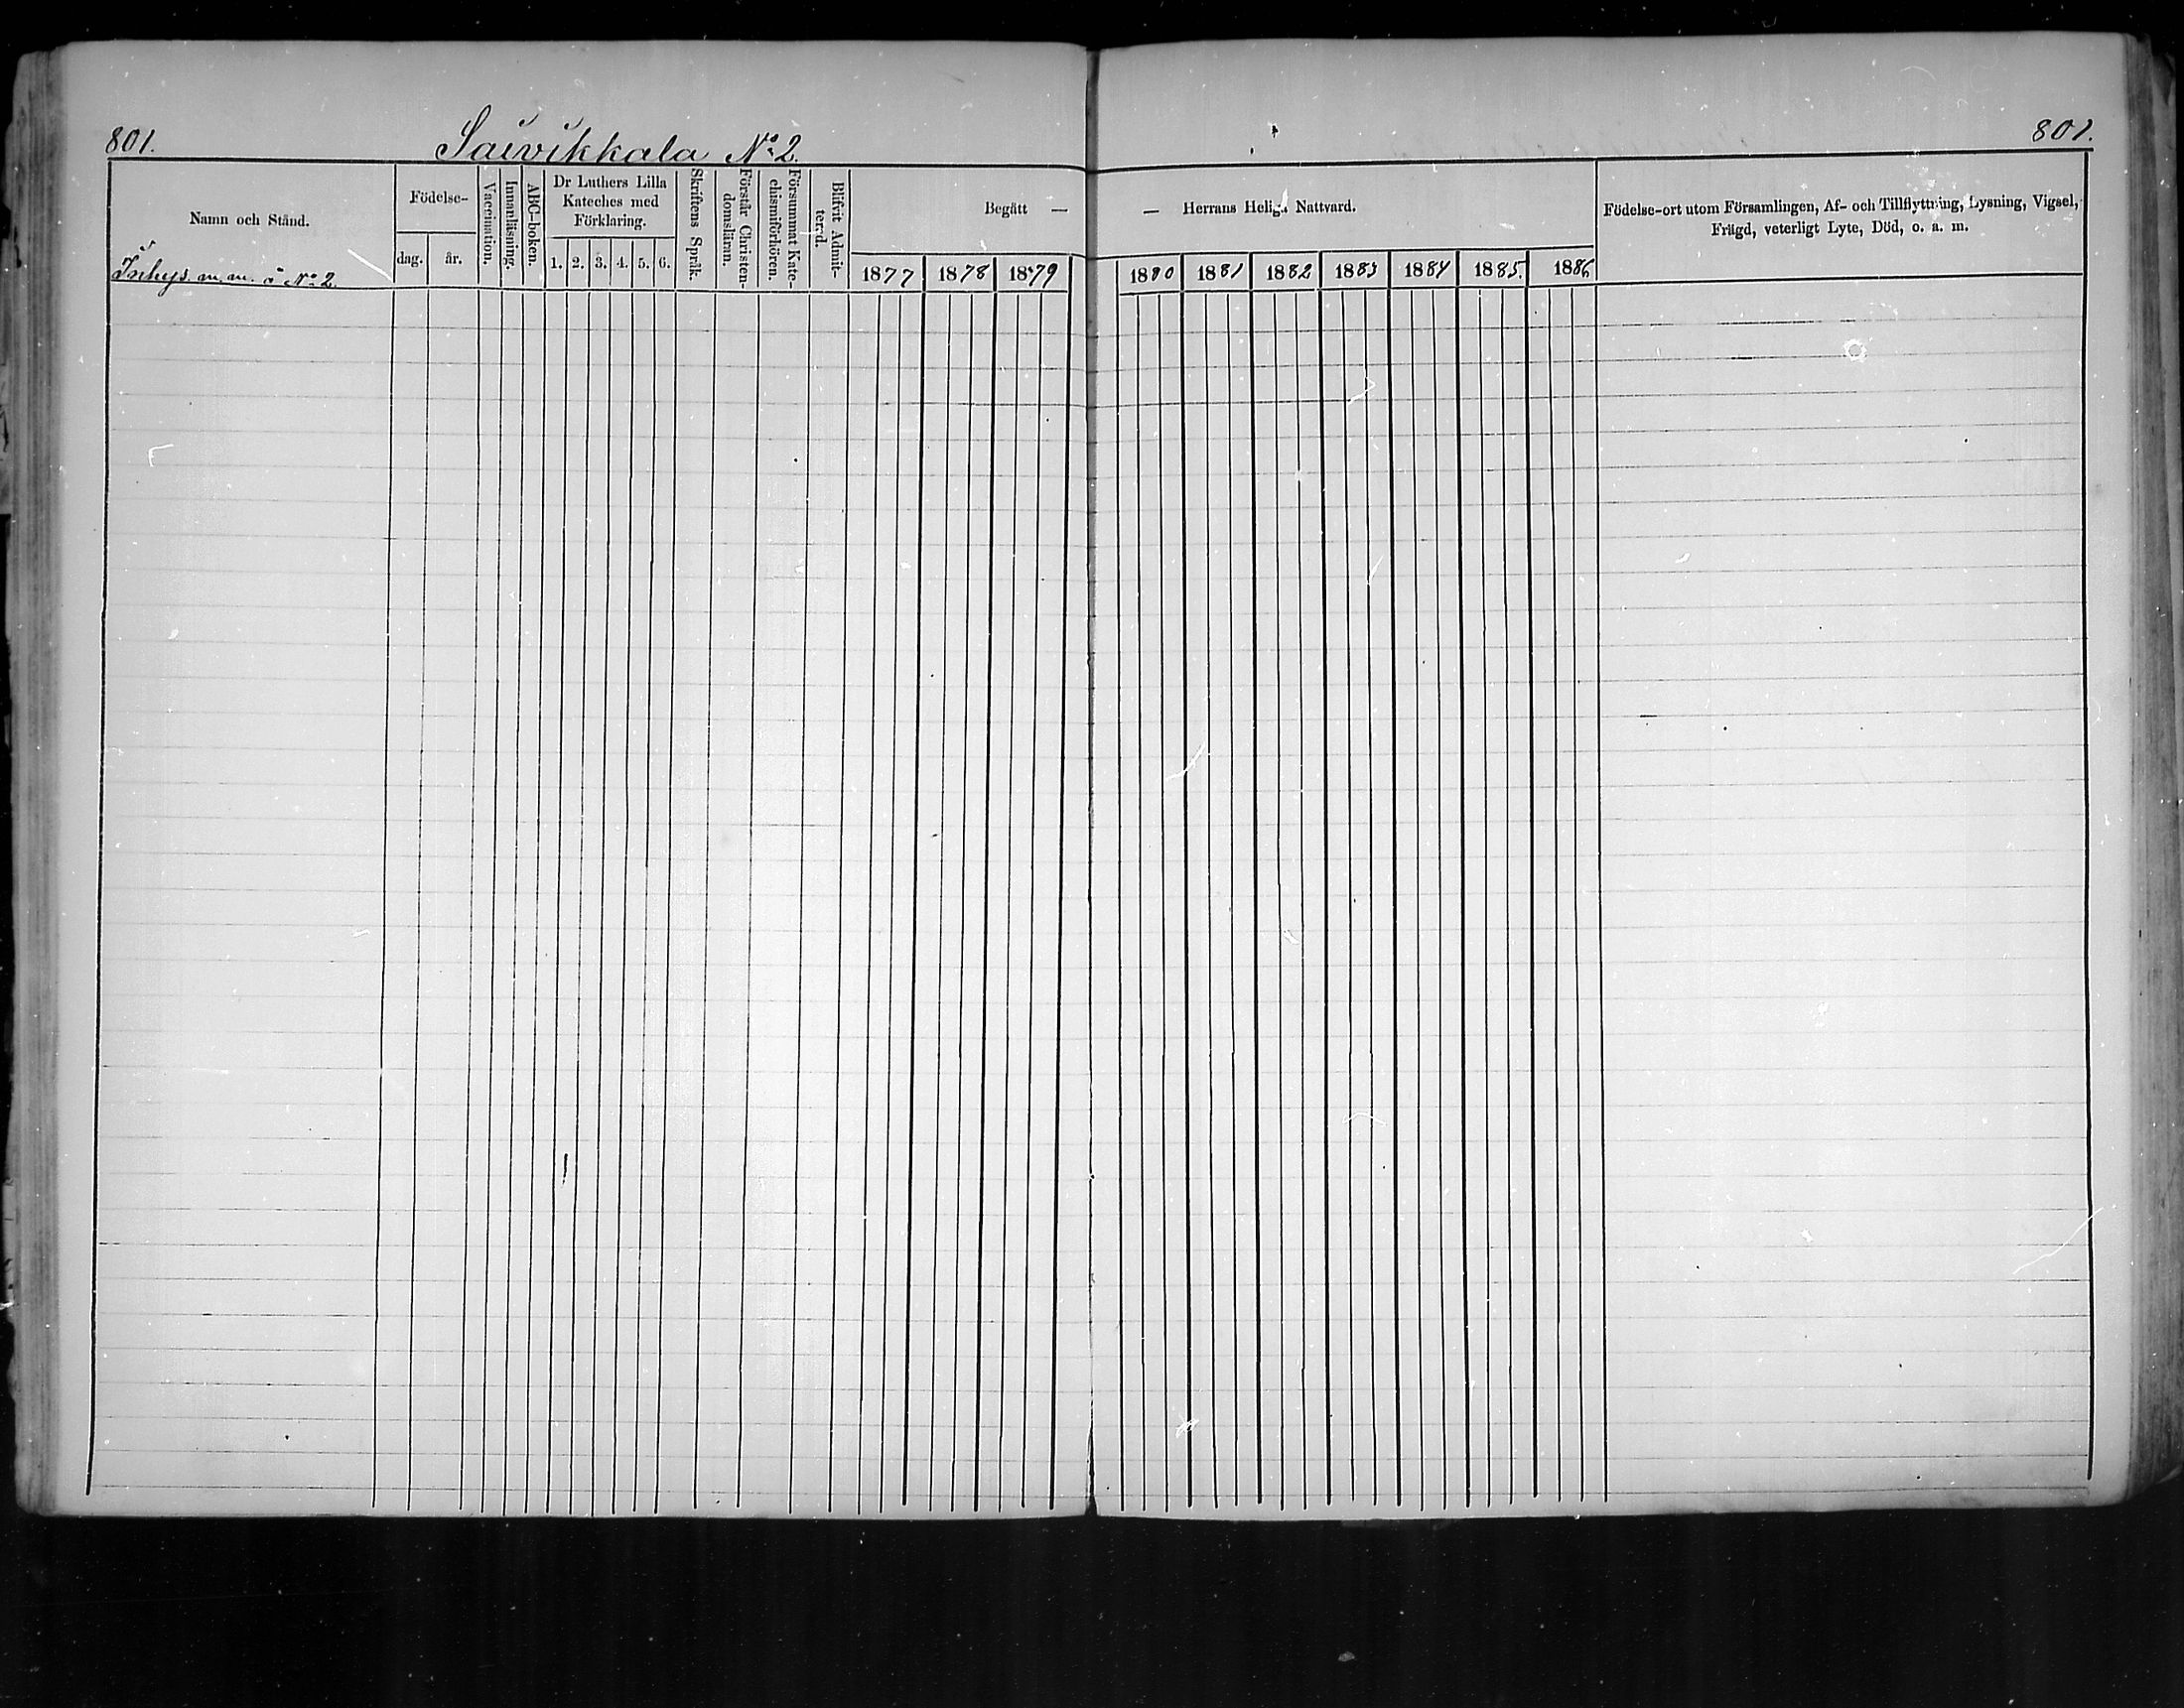 801.
Saivikkala No 2.
801.
Namn och Stånd.
Födelse-
dag.
år.
Vaccination.
Innanläsning.
ABC-boken.
Dr Luthers Lilla
Kateches med
Förklaring.
1. 2. 3. 4. 5. 6.
Skriftens Språk.
Förstår Christen-
domsläran.
Försummat Kate-
chismiförhören.
Blifvit Admit-
terad.
Begått —
1877 1878 1879
— Herrans Heliga Nattvard.
1880 1881 1882 1883 1884 1885. 1886
Födelse-ort utom Församlingen, Af- och Tillflyttning, Lysning, Vigsel,
Frägd, veterligt Lyte, Död, o. a. m.
Inhys. m. m. å No 2.